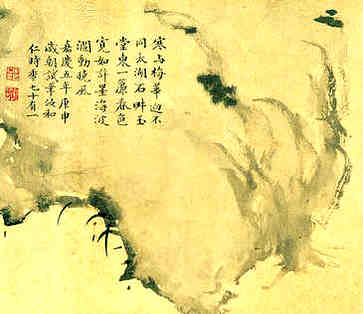 寒与梅華迥不
同太湖石畔玉
堂東一簾春色
寛如許墨海波
瀾動曉風
嘉慶五年庚申
歲朝試筆和
仁時年七十有一